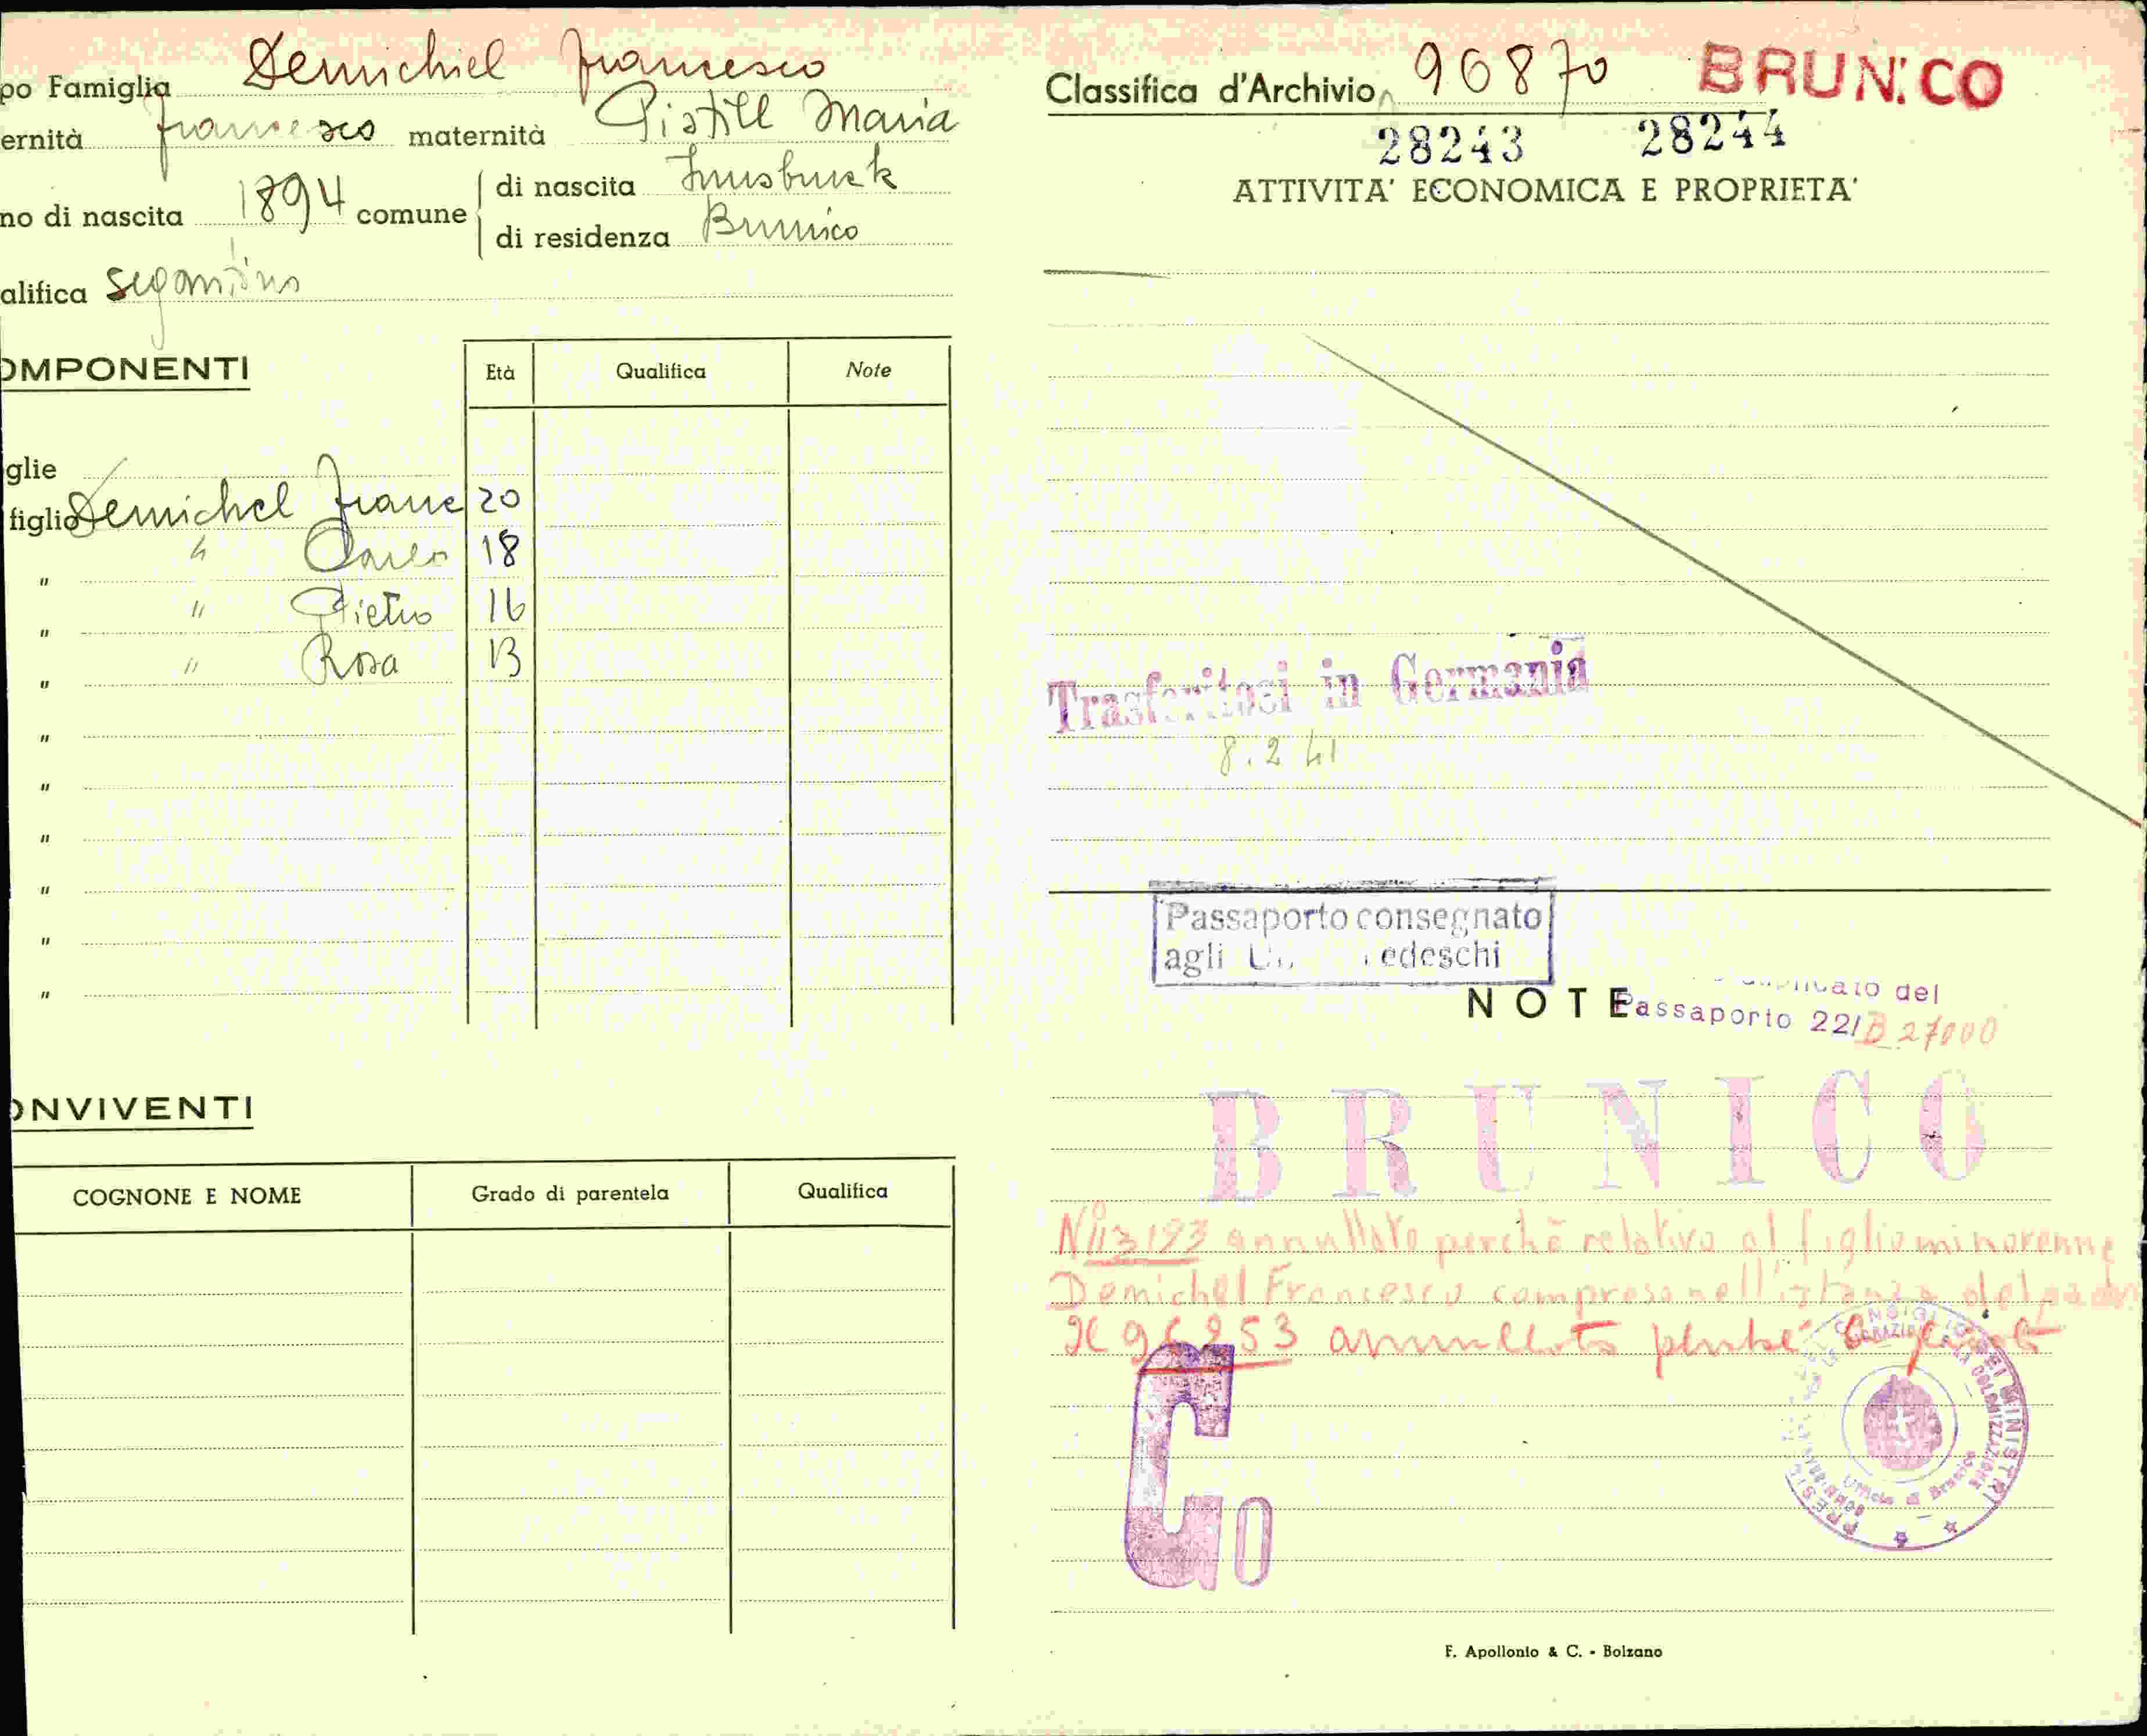 po Famiglia Demichiel Francesco
ernità Francesco maternità Pistill Maria
no di nascita 1894 comune di nascita Innsbruck
di residenza Brunico
alifica segantino
OMPONENTI Età Qualifica Note
glie
figlio Demichel Franc 20
" Carlo 18
" " Pietro 16
" " Rosa 13
"
"
"
"
"
"
"
ONVIVENTI
COGNONE E NOME Grado di parentela Qualifica
Classifica d'Archivio 96870 BRUNICO
28243 28244
ATTIVITA' ECONOMICA E PROPRIETA'
Trasferitosi in Germania
8.2 41
Passaporto consegnato
agli edeschi
NOTE
del
Passaporto 22/B 27000
BRUNICO
N 113193 annullato perchè relativo al figlio minorenne
Demichel Francesco compreso nell'istanza del
96253 annullato perchè
Go
PRESIDENZA CONSIGLIO DEI MINISTRI
Ufficio di Brunico
F. Apollonio & C. - Bolzano